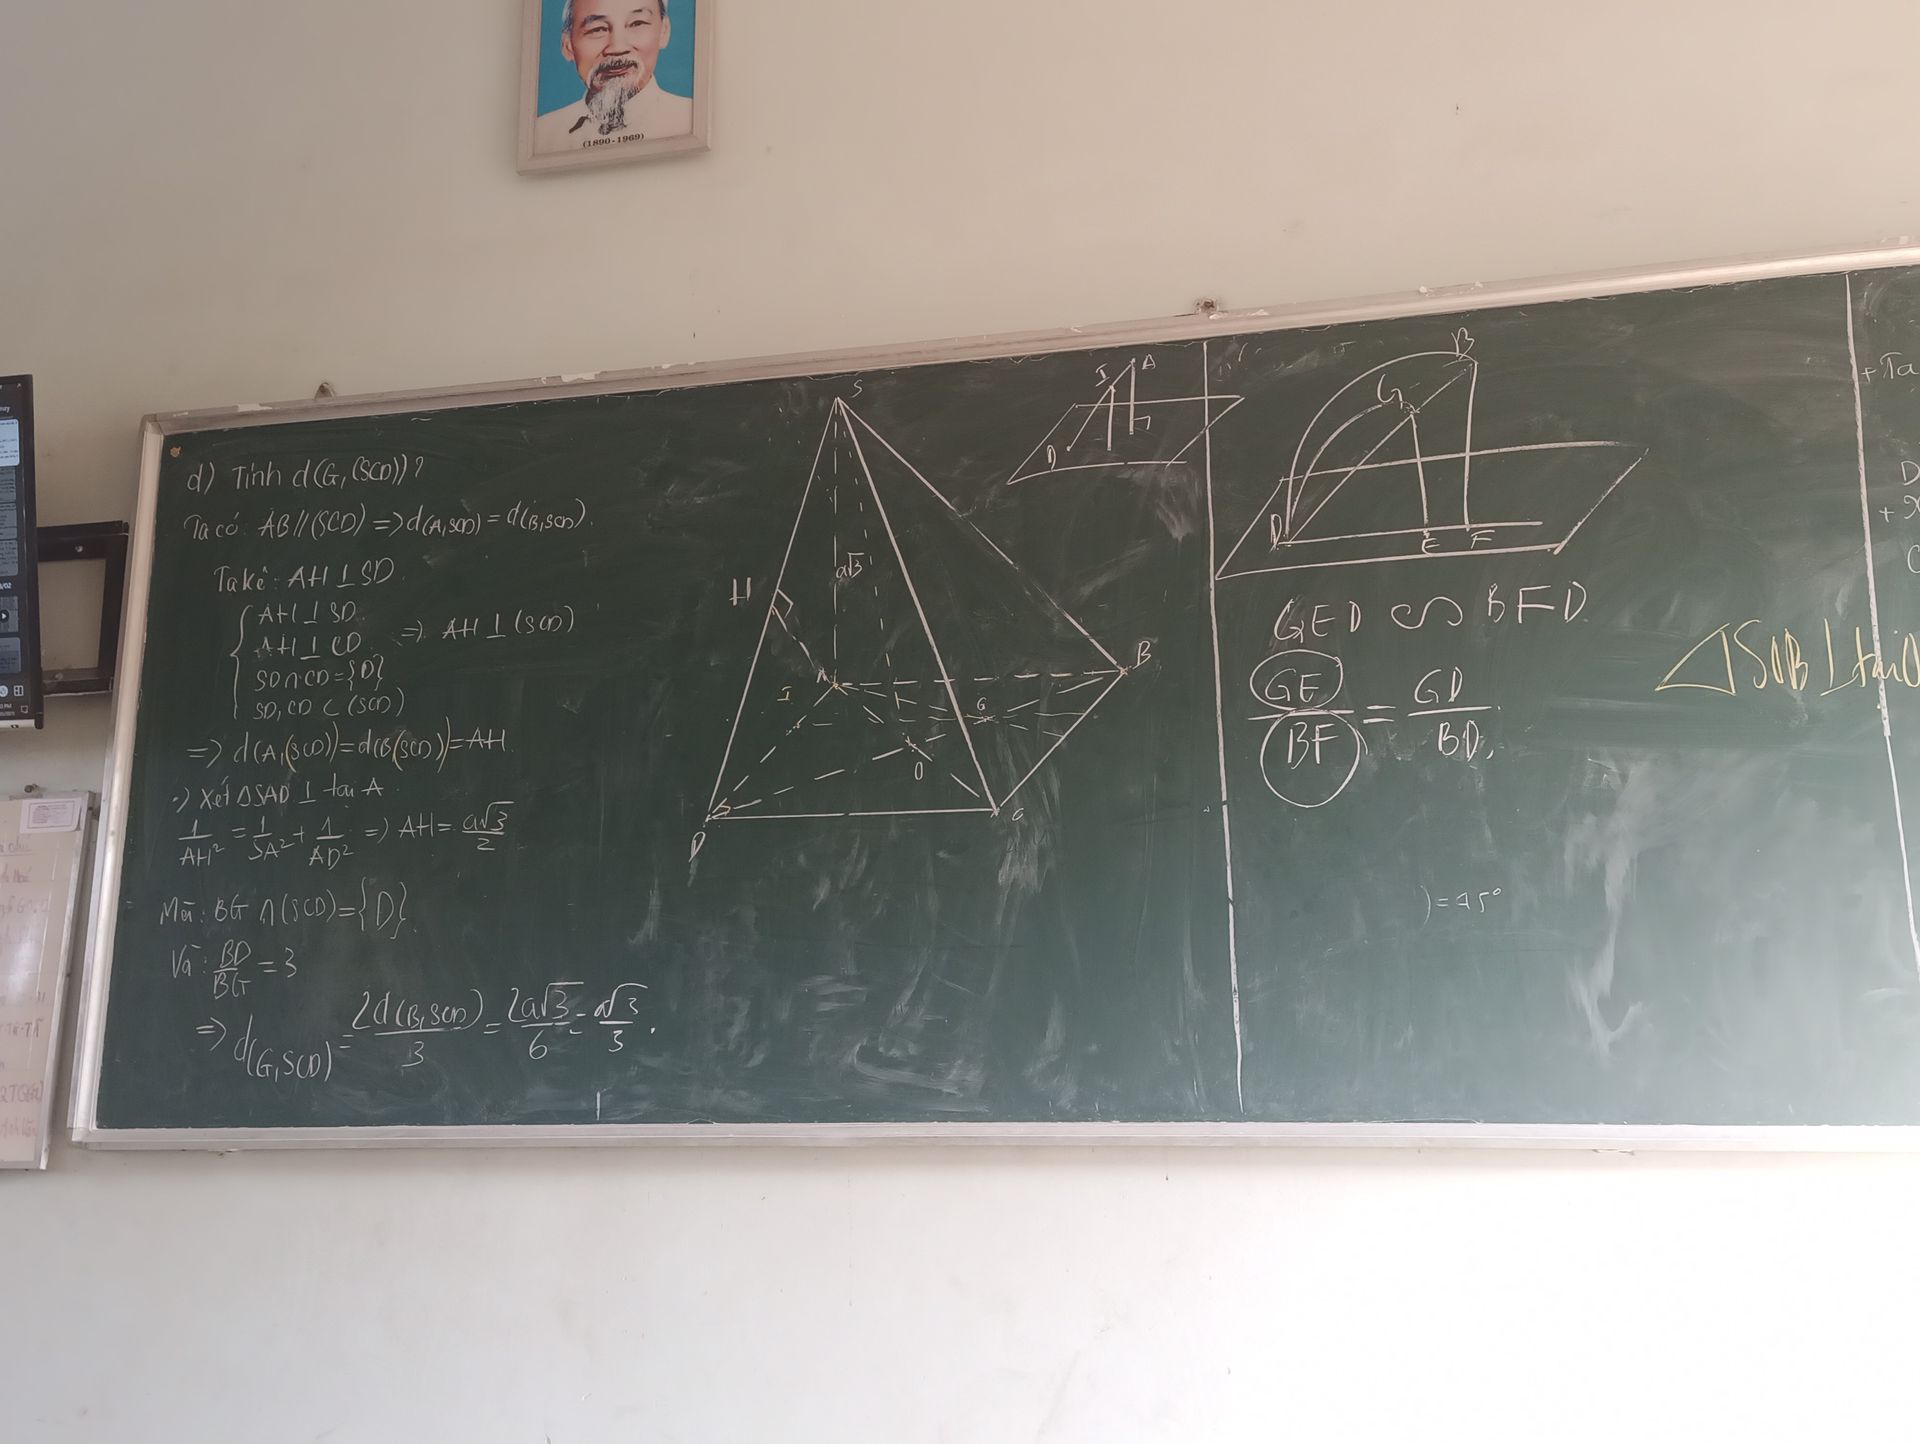 (1890-1969)
d) Tính d(G,(SCD))?
Ta có: AB//(SCD) => d(A,SCD) = d(B,SCD).
Ta kẻ: AH ⊥ SD.
AH ⊥ SD.
AH ⊥ CD
SD ∩ CD = {D}
SD, CD ⊂ (SCD)
=> AH ⊥ (SCD)
=> d(A,(SCD)) = d(B(SCD)) = AH.
Xét ΔSAD ⊥ tại A.
1/AH² = 1/SA² + 1/AD² => AH = a√3/2
Mà: BG ∩ (SCD) = {D}.
Và: BD/BG = 3
=> d(G,SCD) = 2d(B,SCD)/3 = 2a√3/6 = a√3/3.
S
a√3
H
A
I
B
G
O
D
C
I A
D
B
G
D E F
GED ∽ BFD
GE/BF = GD/BD.
) = 45°
+ Ta
D
+
C